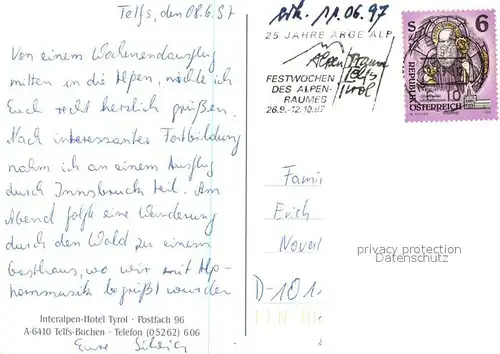 Telfs, den 08.6.97
Von einem Wochenendausflug
mitten in die Alpen, möchte ich
Euch recht herzlich grüßen.
Nach interessanter Fortbildung
nahm ich an einem Ausflug
durch Innsbruck teil. Am
Abend folgte eine Wanderung
durch den Wald zu einem
Gasthaus, wo wir mit Alp-
hornmusik begrüßt wurden
Interalpen-Hotel Tyrol · Postfach 96
A-6410 Telfs-Buchen · Telefon (05262) 606
Eure
erh. 11.06.97
25 JAHRE ARGE ALP
Alpen/Traum
Telfs
Tyrol
FESTWOCHEN
DES ALPEN-
RAUMES
26.9.-12.10.97
S 6
REPUBLIK
ÖSTERREICH
Famil
Erich
Novar
D-101
privacy protection
Datenschutz